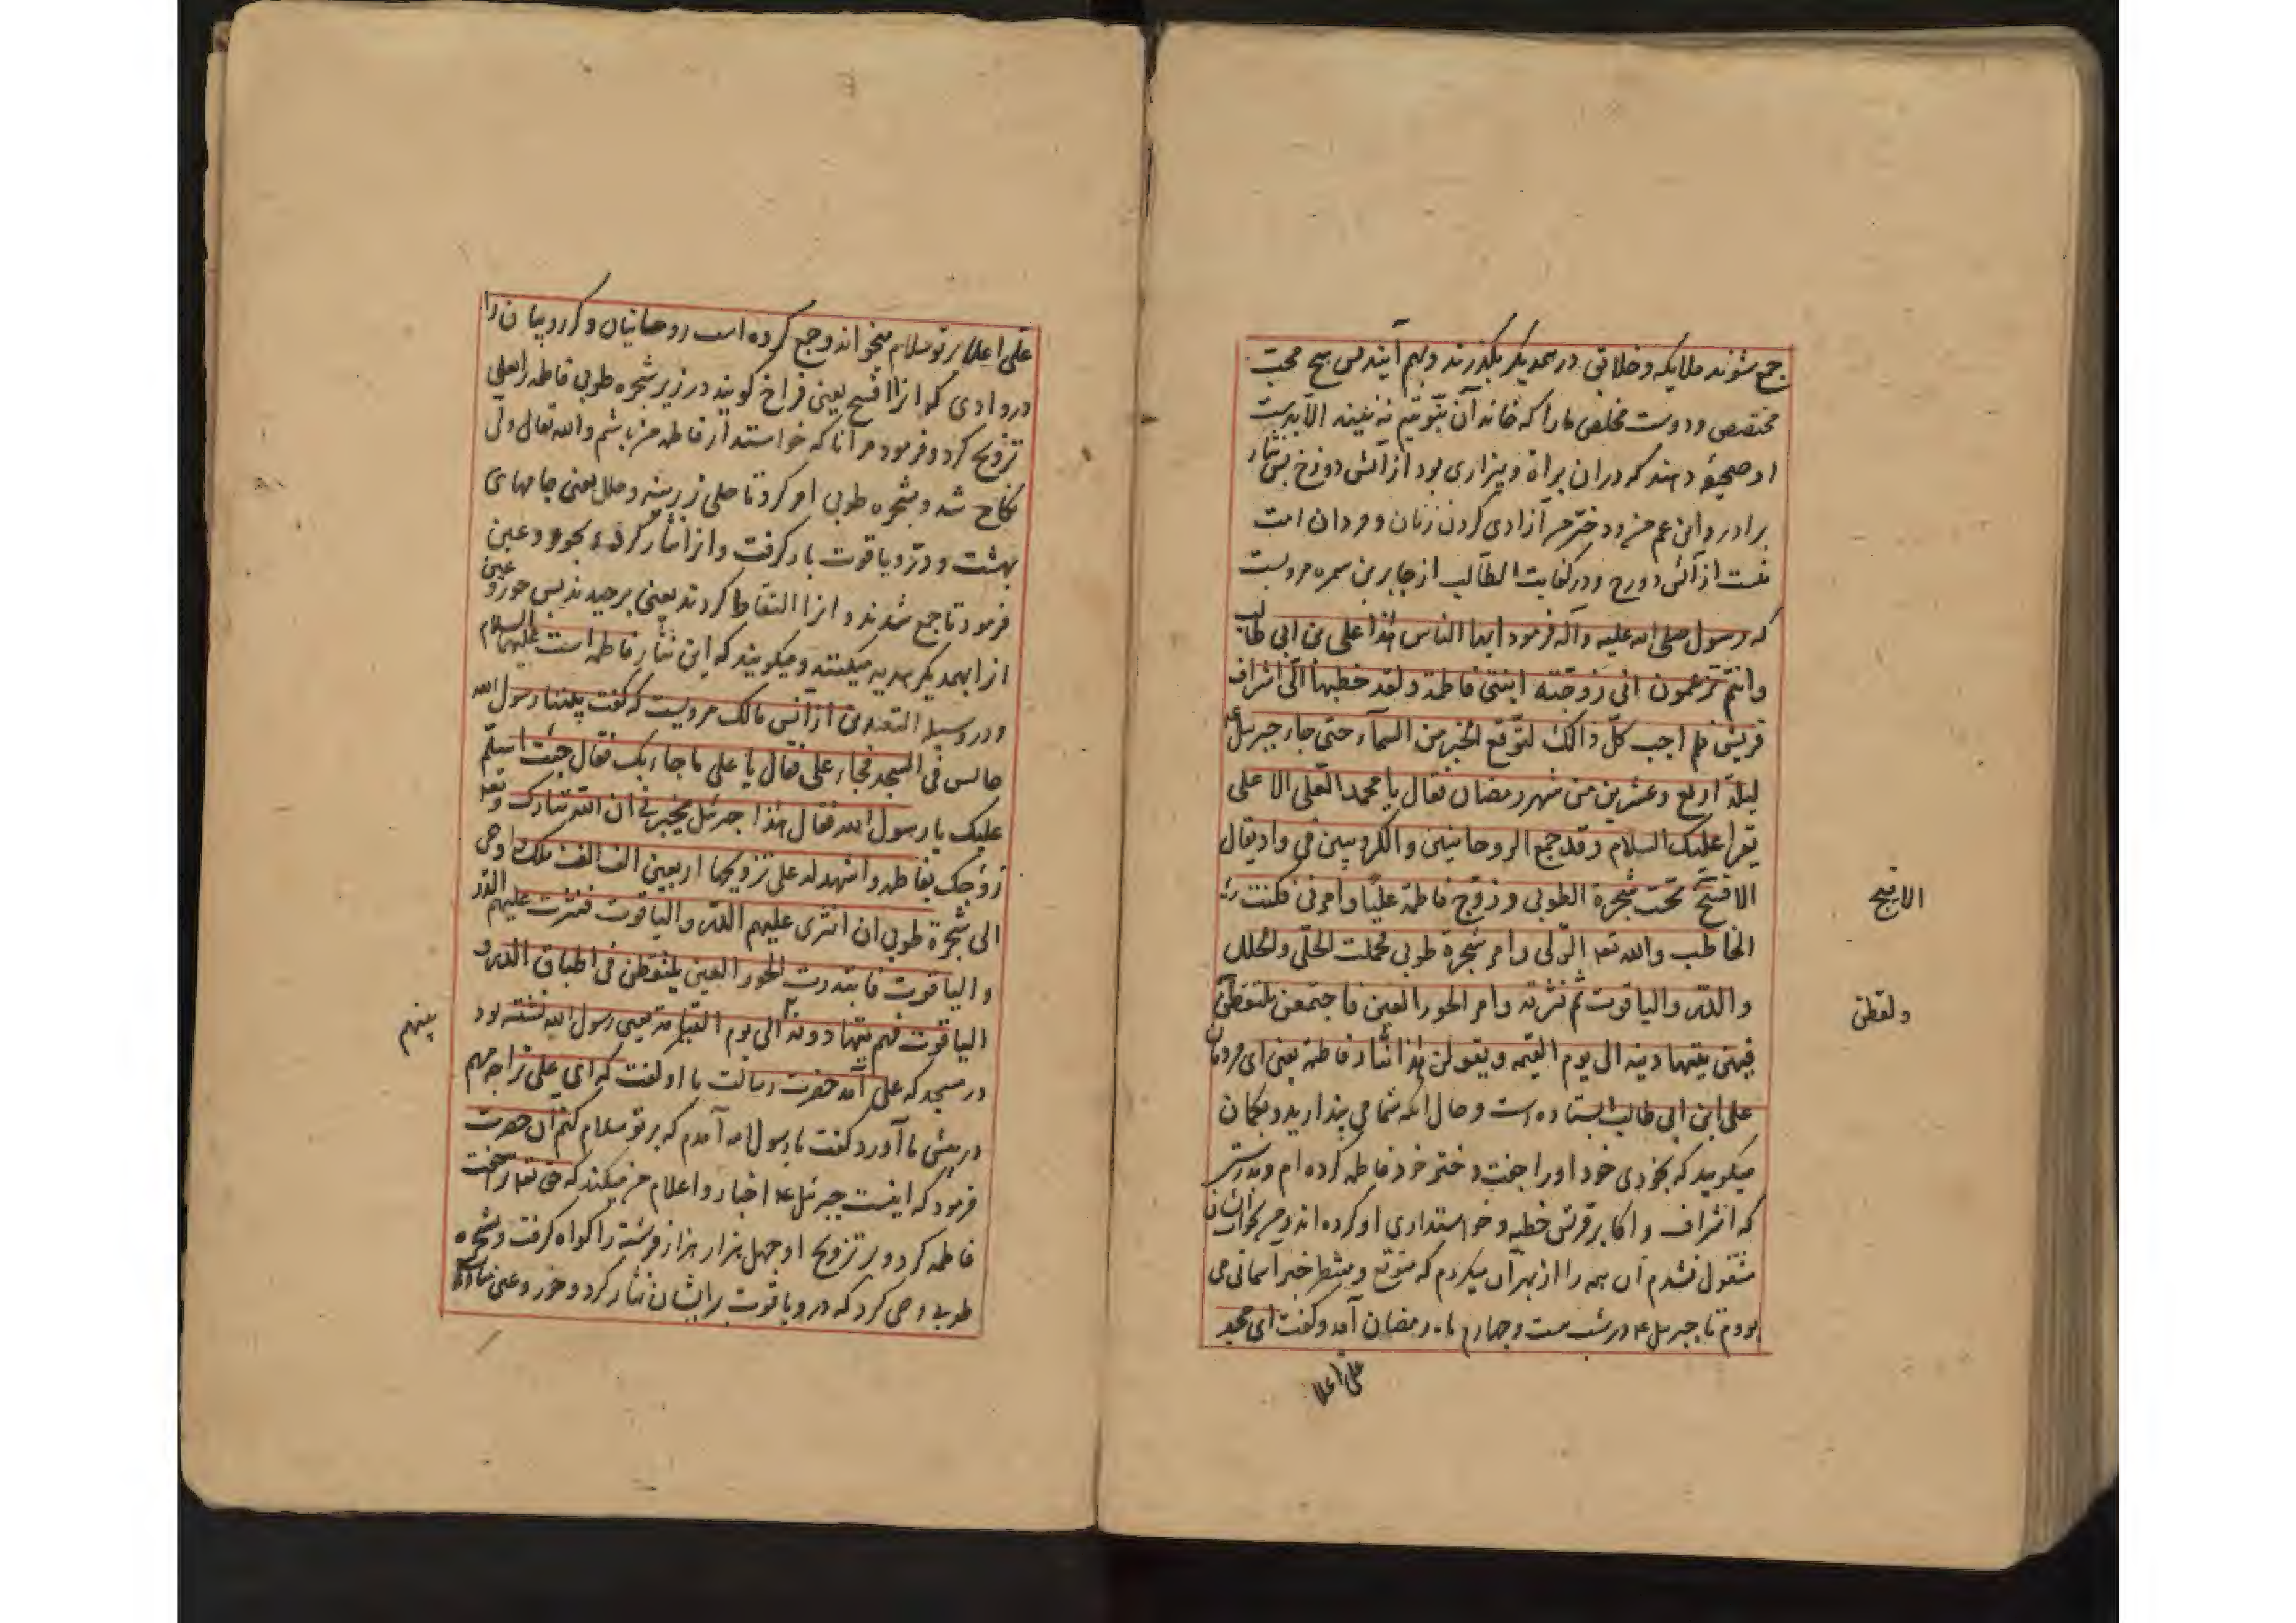 جمع شوند ملایکه و خلایق در همدیگر بگذرند و بهم آیند پس هیچ محب
مختص و دوست مخلص ما را که خاندان نبوتیم نه بینند الا بدست
او صحیفهٔ دهند که در ان براة و بیزاری بود از آتش دوزخ پس نثار
برادر و ابن عم من و دختر من آزادی کردن زنان و مردان امت
منست از آتش دوزخ و در کفایت الطالب از جابر بن سمره مرویست
که رسول صلی الله علیه وآله فرمود ایها الناس هذا علی بن ابی طالب
وانتم تزعمون انی زوجته ابنتی فاطمة ولقد خطبها الی اشراف
قریش فلم اجب کل ذالک لتوقع الخبر من السماء حتی جاء جبرئیل ع
لیلة اربع وعشرین من شهر رمضان فقال یا محمد العلی الاعلی
یقرا علیک السلام وقد جمع الروحانیین والکروبیین فی واد یقال
الافیح تحت شجرة الطوبی وزوج فاطمة علیا وامرنی فکنت
الخاطب والله تعه الولی وامر شجرة طوبی فحملت الحلی والحلل
والدر والیاقوت ثم نثرته وامر الحور العین فاجتمعن یلتقطن
فهن یتهادینه الی یوم القیمه ویقولن هذا نثار فاطمة یعنی ای مردمان
علی ابن ابی طالب ایستاده است و حال انکه شما می پندارید و بگمان
میگویید که بخودی خود او را جفت دختر خود فاطمه کرده ام و بدرستی
که اشراف و اکابر قریش خطبه و خواستداری او کرده اند و من بجواب
مشغول نشدم آن همه را از بهر آن میکردم که متوقع و منتظر خبر آسمانی می
بودم تا جبرئیل ع در شب بیست و چهارم ماه رمضان آمد و گفت ای محمد
علی اعلا
الافیح
ولقطن
علی اعلا بر تو سلام میخواند و جمع کرده است روحانیان و کروبیان را
در وادی که ازا افیح یعنی فراخ گویند در زیر شجره طوبی فاطمه را بعلی
تزویج کرد و فرمود مرا تا که خواستدار فاطمه من باشم و الله تعالی ولی
نکاح شد و بشجره طوبی امر کرد تا حلی زرینه و حلل یعنی جامهای
بهشت و در و یاقوت بار گرفت و ازا نثار کرد و بحور و عین
فرمود تا جمع شدند و انرا التقاط کردند یعنی برچیدند پس حور و عین
ازا بهمدیگر هدیه میکنند و میگویند که این نثار فاطمه است علیها السلام
و در وسیلة المتعبدین از انس مالک مرویست که گفت بینما رسول الله
جالس فی المسجد فجاء علی فقال یا علی ما جاء بک فقال جئت اسلم
علیک یا رسول الله فقال هذا جبرئیل یخبرنی ان الله تبارک وتعه
زوجک بفاطمه واشهد له علی تزویجها اربعین الف الف ملک واوحی
الی شجرة طوبی ان انثری علیهم الدر والیاقوت فنثرت علیهم الدر
والیاقوت فابتدرت الحور العین یلتقطن فی اطباق الدر و
الیاقوت فهم یتهادونه الی یوم القیامة یعنی رسول الله نشسته بود
در مسجد که علی آمد حضرت رسالت با او گفت که ای علی ترا چه مهم
در پیش ما آورد گفت یا رسول الله آمدم که بر تو سلام کنم آن حضرت
فرمود که اینست جبرئیل ع اخبار و اعلام من میکند که حق تعه ترا جفت
فاطمه کرد و بر تزویج او چهل هزار هزار فرشته را گواه گرفت و بشجره
طوبی وحی کرد که در و یاقوت بر ایشان نثار کرد و حور و عین
بینهم